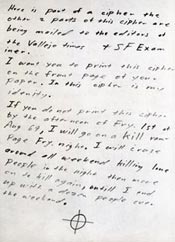 Here is part of a cipher the
other 2 parts of this cipher are
being mailed to the editors of
the Vallejo times + SF Exam
iner.
I want you to print this cipher
on the front page of your
paper. In this cipher is my
idenity.
If you do not print this cipher
by the afternoon of Fry. 1st of
Aug 69, I will go on a kill ram-
Page Fry. night. I will cruse
around all weekend killing lone
people in the night then move
on to kill again, untill I end
up with a dozen people over
the weekend.